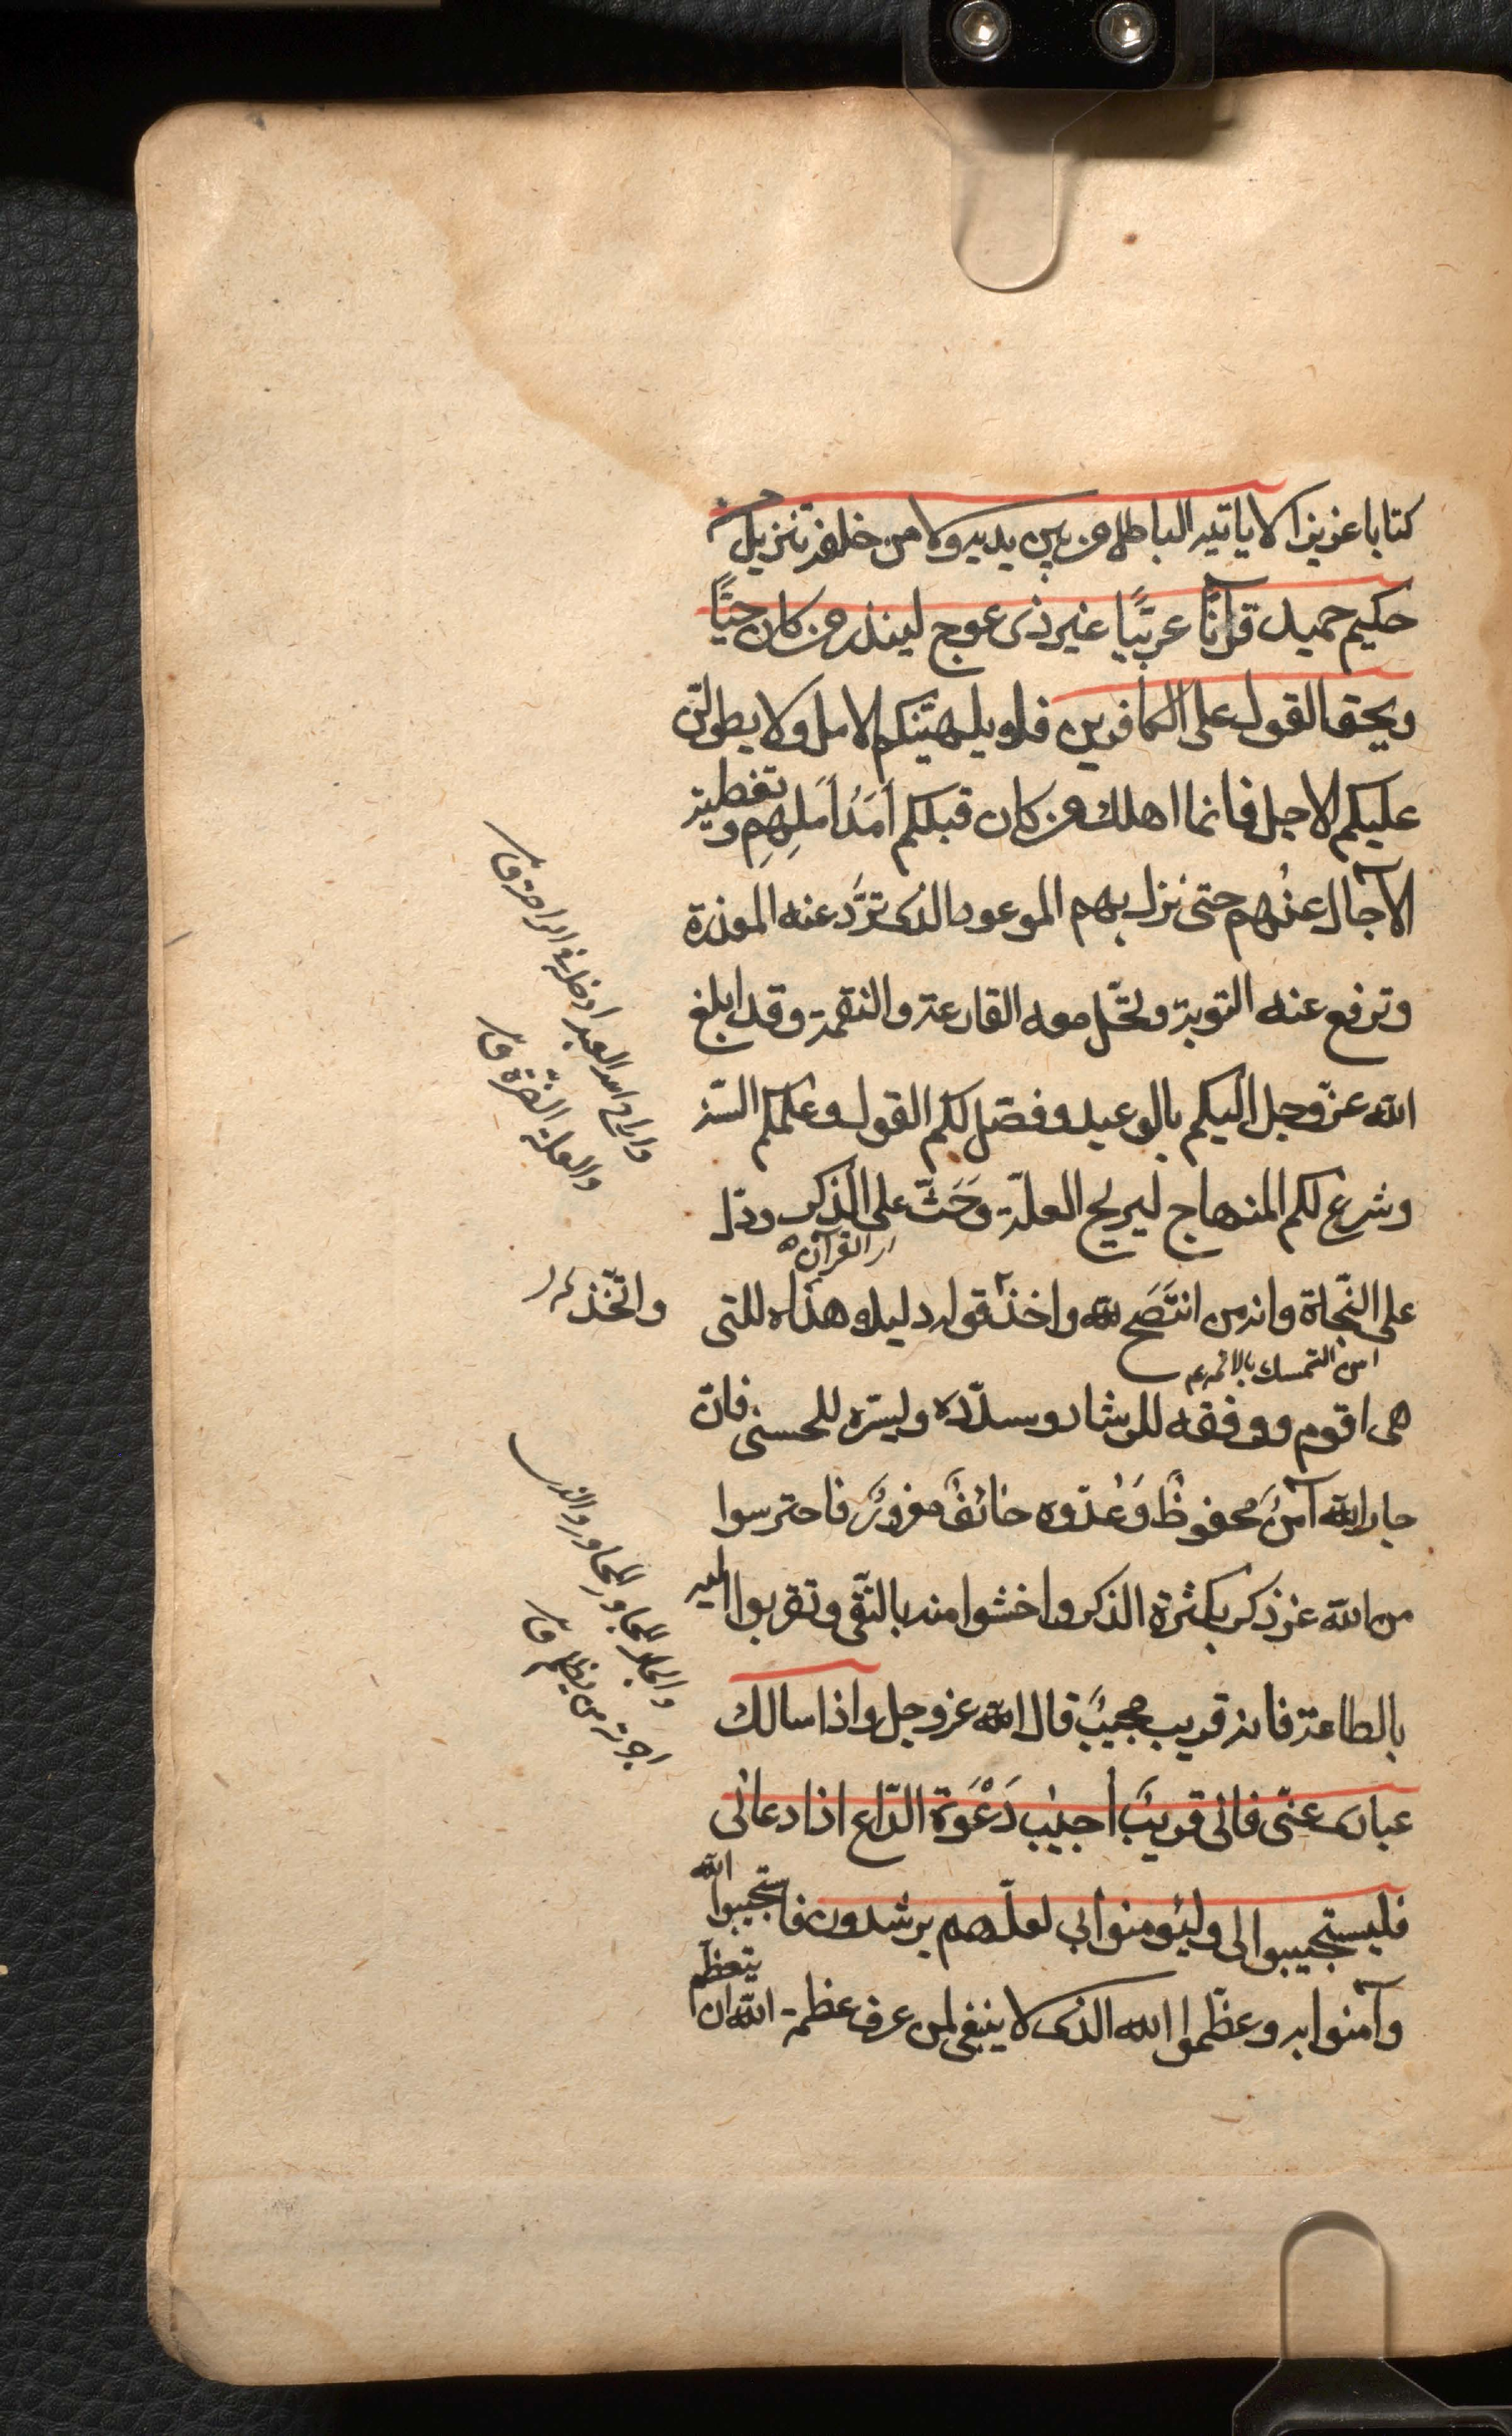 كتابا عزيزا لا ياتيه الباطل من بين يديه ولا من خلفه تنزيل من
حكيم حميد قرآنًا عربيًّا غير ذى عوج لينذر من كان حيًّا
ويحق القول على الكافرين فلا يلهيَنّكم الامل ولا يطولنّ
عليكم الاجل فانما اهلك من كان قبلكم أمَدُ أمَلِهِم وتغطية
الآجال عنهم حتى نزل بهم الموعود الذى تردّ عنه المعذرة
وترفع عنه التوبة وتحّل معه القارعة والنقمة وقد ابلغ
الله عزّ وجل اليكم بالوعيد وفصّل لكم القول وعلمكم السّنة
وشرع لكم المنهاج ليريح العلّة وحَثّ على الذكر ودّل
اى القرآن
على النّجاة وانه من انتَصَح لله واخذ قوله دليلا هداه للتى
من التمسك بالائمه ع
هى اقوم ووفقه للرشاد وسدّده ويسّره للحسنى فانّ
جار الله آمنٌ محفوظٌ وَعدّوه خائفٌ مغرورٌ فاحترسوا
من الله عز ذكره بكثرة الذكر واخشوا منه بالتّقى وتقربوا اليه
بالطاعة فانه قريب مجيبٌ قال الله عز وجل واذا سالك
عبادى عنّى فانى قريبٌ أجيب دَعْوَة الدّاع اذا دعانى
فليستجيبوا لى وليؤمنوا بى لعلّهم يرشدون فاستجيبوا الله
وآمنوا به وعظّموا الله الذى لا ينبغى لمن عرف عظمة الله ان يتعظّم
واراح الله العبد ادخله فى الراحة ق
والعلة الضرة ق
واتّخذ
والجار المجاور والذى
اجرته من يظلم ق